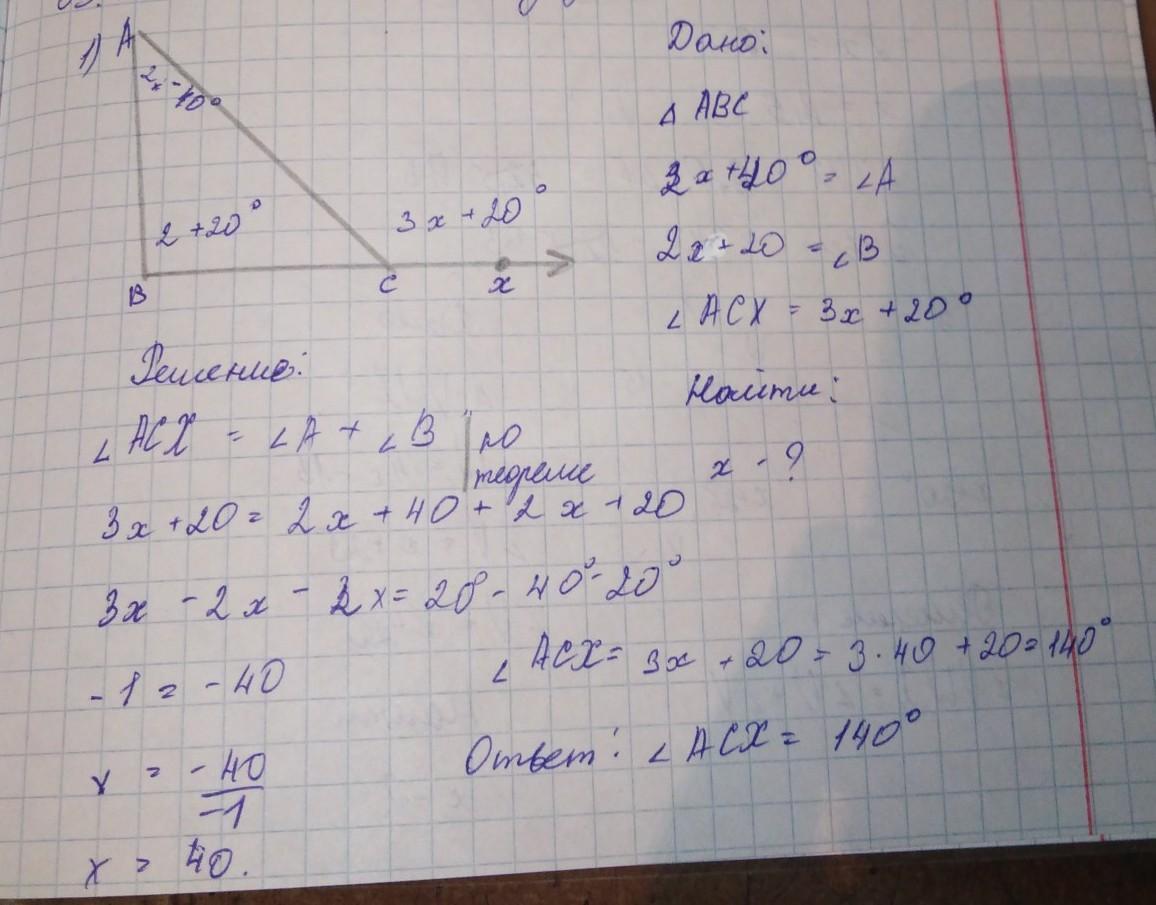 1)
A
2x - 40°
2 + 20°
3x + 20°
B
C
x
Дано:
△ ABC
2x + 40° = ∠A
2x + 20 = ∠B
∠ ACX = 3x + 20°
Найти:
x - ?
Решение:
∠ ACX = ∠A + ∠B | по
теореме
3x + 20 = 2x + 40 + 2x + 20
3x - 2x - 2x = 20° - 40° - 20°
- 1 = - 40
x = - 40
- 1
x = 40.
∠ ACX = 3x + 20 = 3 · 40 + 20 = 140°
Ответ: ∠ ACX = 140°